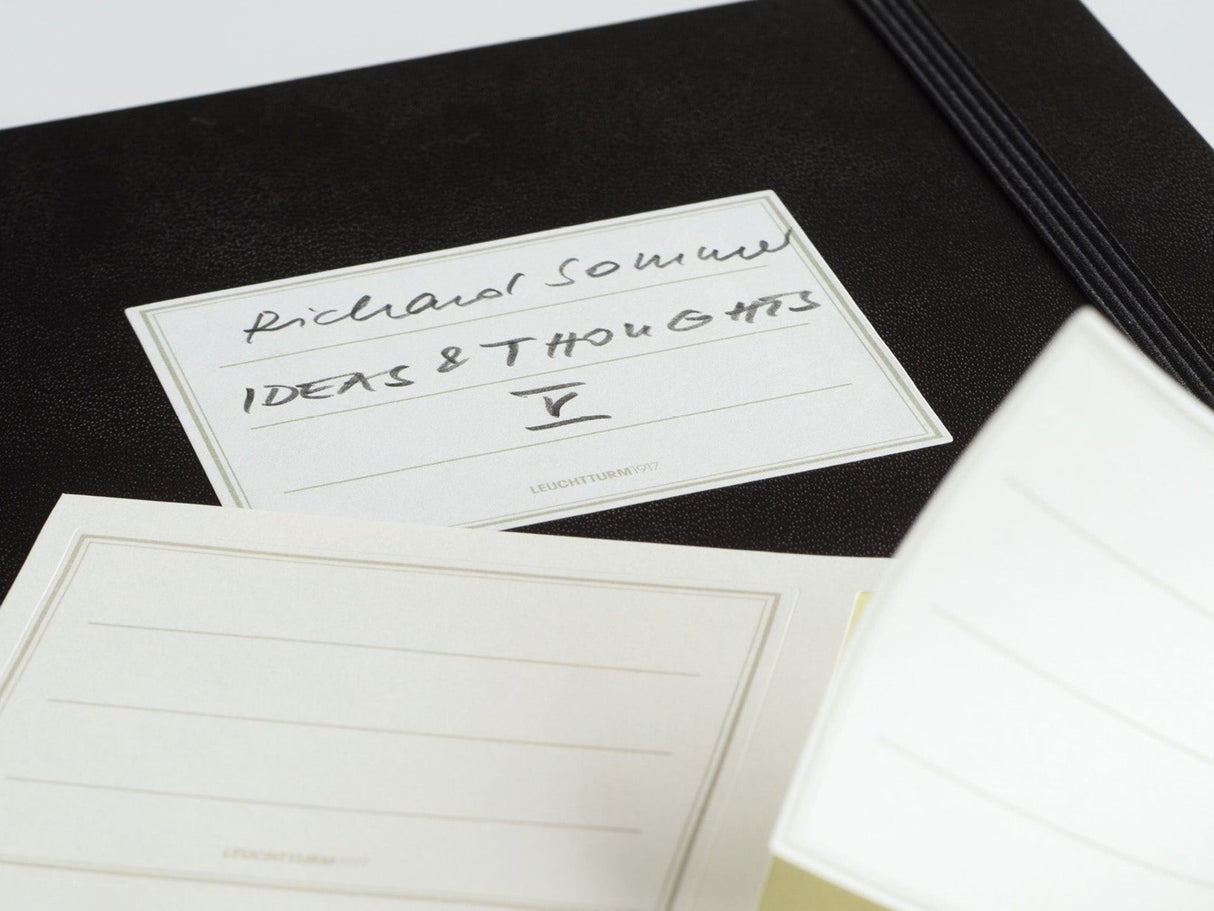 Richard Sommer
IDEAS & THOUGHTS
V
LEUCHTTURM1917
LEUCHTTURM1917